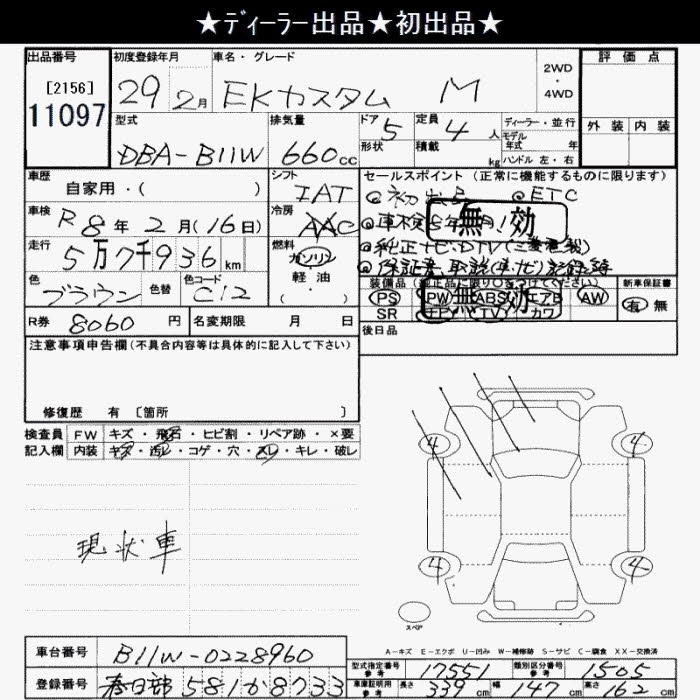 ★ディーラー出品★初出品★
出品番号
[2156]
11097
初度登録年月
29 2月
車名・グレード
EKカスタム M
2WD
・
4WD
評価点
外装 内装
型式
DBA-B11W
排気量
660cc
ドア 5
形状
定員 4 人
積載 kg
ディーラー・並行
モデル
年式 年
ハンドル 左・右
車歴
自家用・( )
シフト
IAT
セールスポイント (正常に機能するものに限ります)
◎初出品 ◎ETC
無効
◎純正ナビ・DTV(三菱電機)
◎保証書 取説(車・ナビ)記録簿
車検
R8年2月(16日)
冷房
AAC
走行
5万7千936km
燃料
ガソリン
軽・油
色
ブラウン
色替
色コード
C12
装備品 (純正品に限り○をつけてください)
PS PW ABS エアB AW
SR TV カワ
無効
新車保証書
有 無
R券
8060円
名変期限 月 日
後日品
注意事項申告欄(不具合内容等は具体的に記入して下さい)
修復歴 有 〔箇所 〕
検査員
記入欄
FW キズ・飛石・ヒビ割・リペア跡・×要
内装 キズ・汚レ・コゲ・穴・スレ・キレ・破レ
現状車
4 4
4 4
スペア
A-キズ E-エクボ U-凹み W-補修跡 S-サビ C-腐食 XX-交換済
車台番号
B11W-0228960
登録番号
春日部581か8733
型式指定番号
参考
17551
類別区分番号
参考
1505
車庫証明用
参考
長さ 339cm 幅 147cm 高さ 162cm